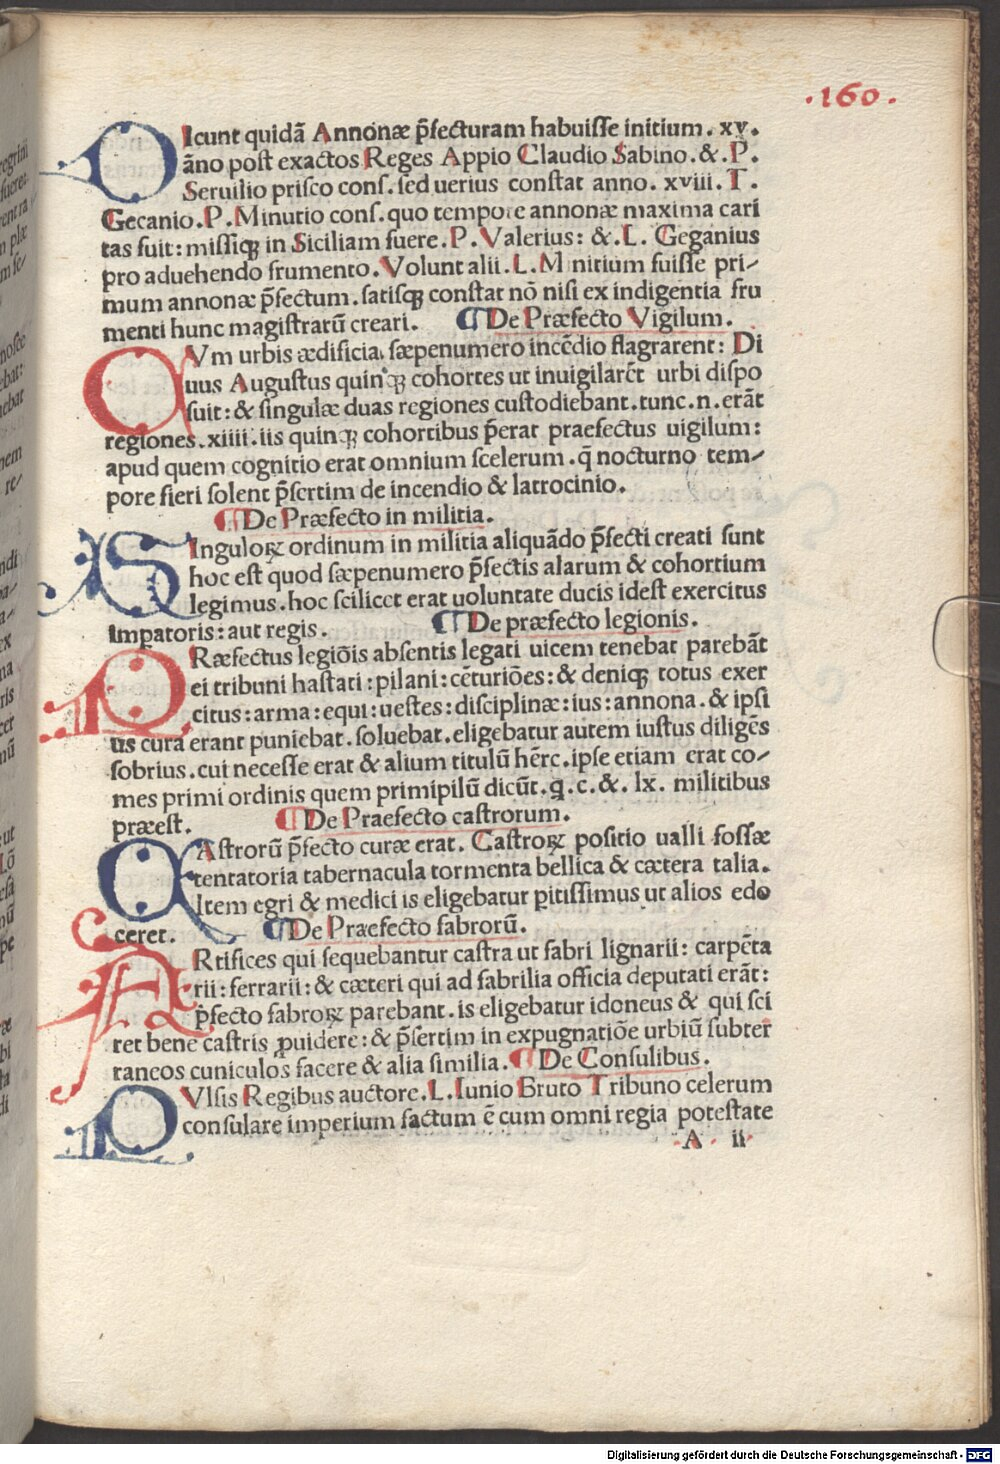 .160.
DIcunt quidã Annonæ p̃fecturam habuisse initium. xv.
ãno post exactos Reges Appio Claudio Sabino. &. P.
Seruilio prisco cons. sed uerius constat anno. xviii. T.
Gecanio. P. Minutio cons. quo tempore annonæ maxima cari
tas fuit: missiqꝫ in Siciliam fuere. P. Valerius: &. L. Geganius
pro aduehendo frumento. Volunt alii. L. M nitium fuisse pri⸗
mum annonæ p̃fectum. satisqꝫ constat nõ nisi ex indigentia fru
menti hunc magistratũ creari. ¶ De Præfecto Vigilum.
CVm urbis ædificia sæpenumero incẽdio flagrarent: Di
uus Augustus quinqꝫ cohortes ut inuigilaret urbi dispo
suit: & singulæ duas regiones custodiebant. tunc. n. erãt
regiones. xiiii. iis quinqꝫ cohortibus p̃erat praefectus uigilum:
apud quem cognitio erat omnium scelerum. q̃ nocturno tem⸗
pore fieri solent p̃sertim de incendio & latrocinio.
¶ De Præfecto in militia.
SInguloꝝ ordinum in militia aliquãdo p̃fecti creati sunt
hoc est quod sæpenumero p̃fectis alarum & cohortium
legimus. hoc scilicet erat uoluntate ducis idest exercitus
impatoris: aut regis. ¶ De præfecto legionis.
PRæfectus legiõis absentis legati uicem tenebat parebãt
ei tribuni hastati: pilani: cẽturiões: & deniqꝫ totus exer
citus: arma: equi: uestes: disciplinæ: ius: annona. & ipsi
us cura erant puniebat. soluebat. eligebatur autem iustus diligẽs
sobrius. cui necesse erat & alium titulũ hẽre. ipse etiam erat co⸗
mes primi ordinis quem primipilũ dicũt. q. c. &. lx. militibus
præest. ¶ De Praefecto castrorum.
CAstrorũ p̃fecto curæ erat. Castroꝝ positio ualli fossæ
tentatoria tabernacula tormenta bellica & cætera talia.
Item egri & medici is eligebatur pitissimus ut alios edo
ceret. ¶ De Praefecto fabrorũ.
ARtifices qui sequebantur castra ut fabri lignarii: carpẽta
rii: ferrarii: & cæteri qui ad fabrilia officia deputati erãt:
p̃fecto fabroꝝ parebant. is eligebatur idoneus & qui sci
ret bene castris ꝓuidere: & p̃sertim in expugnatiõe urbiũ subter
raneos cuniculos facere & alia similia. ¶ De Consulibus.
PVlsis Regibus auctore. L. Iunio Bruto Tribuno celerum
consulare imperium factum ẽ cum omni regia potestate
A ii
Digitalisierung gefördert durch die Deutsche Forschungsgemeinschaft - DFG